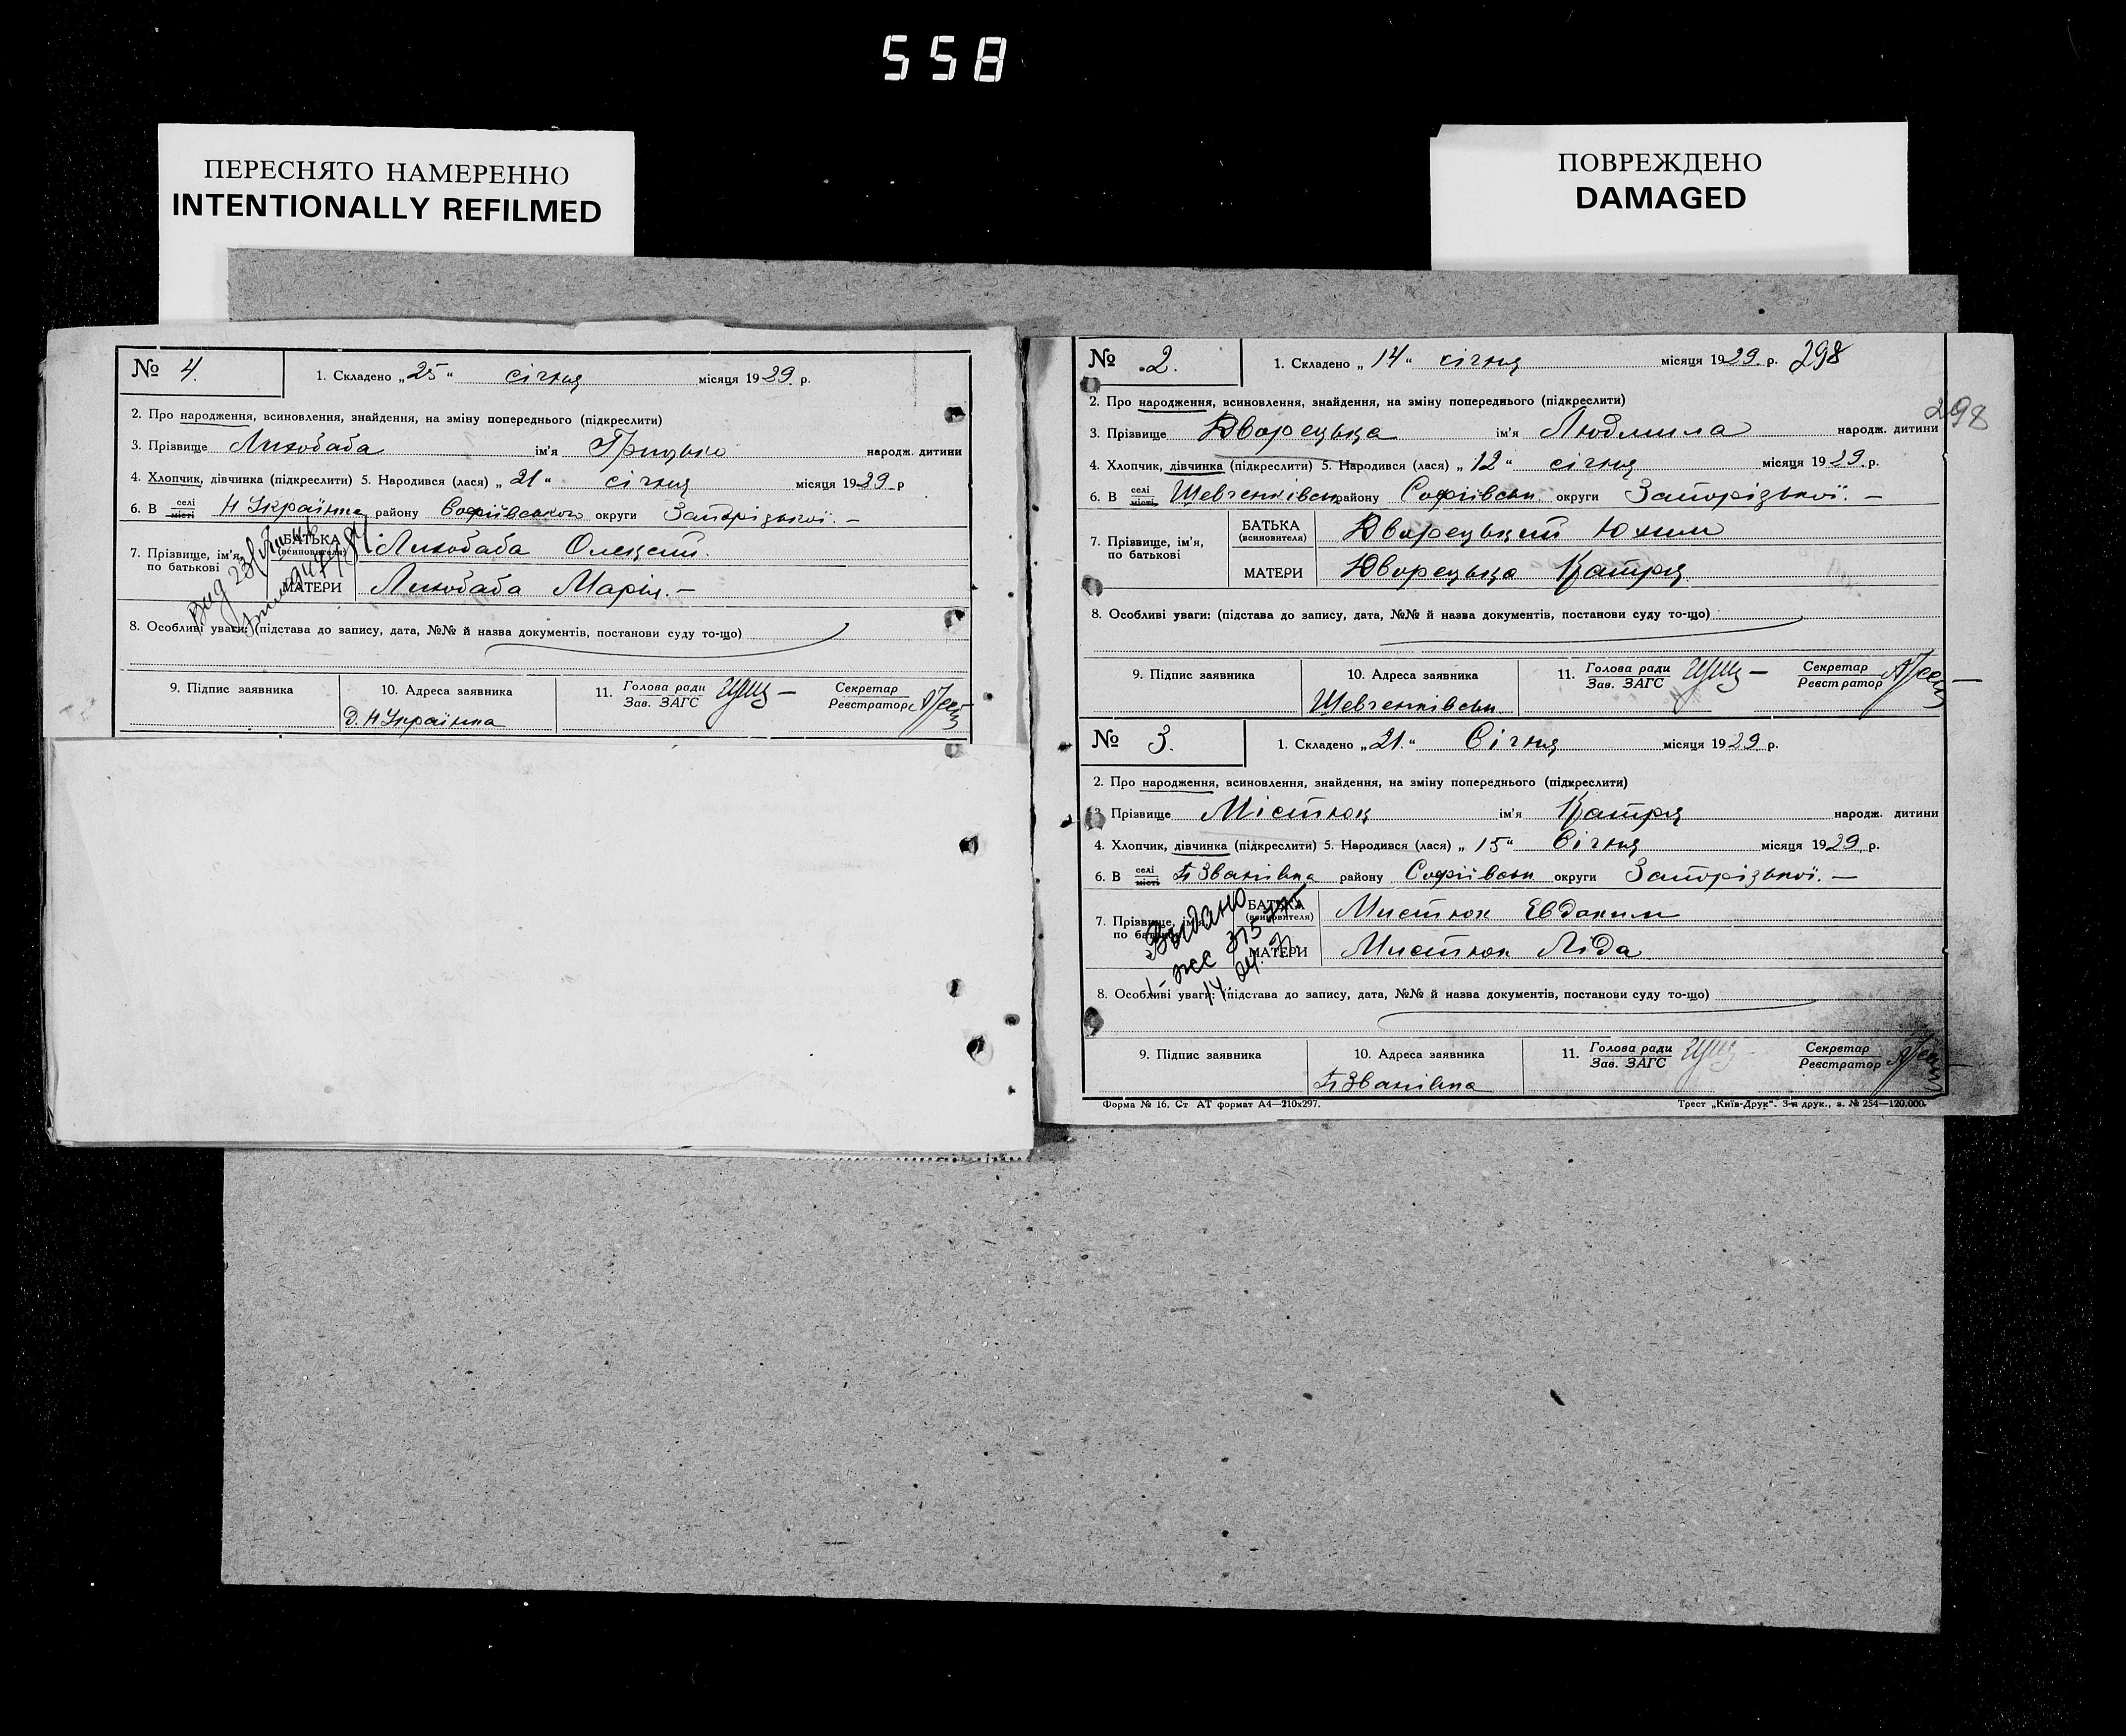 558
ПЕРЕСНЯТО НАМЕРЕННО
INTENTIONALLY REFILMED
ПОВРЕЖДЕНО
DAMAGED
№ 4.
1. Складено „25“ січня місяця 1929 р.
2. Про народження, всиновлення, знайдення, на зміну попереднього (підкреслити)
3. Прізвище Лихобаба ім'я Грицько народж. дитини
4. Хлопчик, дівчинка (підкреслити) 5. Народився (лася) „21“ січня місяця 1929 р
6. В селі місті Н Українка району Софіївського округи Запорізької. –
7. Прізвище, ім'я, по батькові
БАТЬКА (всиновителя) Лихобаба Олексій.
МАТЕРИ Лихобаба Марія. –
8. Особливі уваги: (підстава до запису, дата, №№ й назва документів, постанови суду то-що)
9. Підпис заявника
10. Адреса заявника
Д. Н Українка
11. Голова ради Зав. ЗАГС
Секретар Реєстратор
№ 2.
1. Складено „14“ січня місяця 1929 р. 298
298
2. Про народження, всиновлення, знайдення, на зміну попереднього (підкреслити)
3. Прізвище Дворецька ім'я Людмила народж. дитини
4. Хлопчик, дівчинка (підкреслити) 5. Народився (лася) „12“ січня місяця 1929 р.
6. В селі місті Шевченківськ району Софіївськ округи Запорізької. –
7. Прізвище, ім'я, по батькові
БАТЬКА (всиновителя) Дворецький Юхим
МАТЕРИ Дворецька Катря
8. Особливі уваги: (підстава до запису, дата, №№ й назва документів, постанови суду то-що)
9. Підпис заявника
10. Адреса заявника
Шевченківськ
11. Голова ради Зав. ЗАГС
Секретар Реєстратор
№ 3.
1. Складено „21.“ Січня місяця 1929 р.
2. Про народження, всиновлення, знайдення, на зміну попереднього (підкреслити)
3. Прізвище Містюк ім'я Катря народж. дитини
4. Хлопчик, дівчинка (підкреслити) 5. Народився (лася) „15“ Січня місяця 1929 р.
6. В селі місті Званівка району Софіївськ округи Запорізької. –
7. Прізвище, ім'я, по батькові
Выдано
БАТЬКА (всиновителя) Мистюк Евдоким
МАТЕРИ Мистюк Ліда
8. Особливі уваги: (підстава до запису, дата, №№ й назва документів, постанови суду то-що)
9. Підпис заявника
10. Адреса заявника
Званівка
11. Голова ради Зав. ЗАГС
Секретар Реєстратор
Форма № 16. Ст АТ формат А4—210х297.
Трест „Київ-Друк“. 3-я друк., з. № 254—120.000.